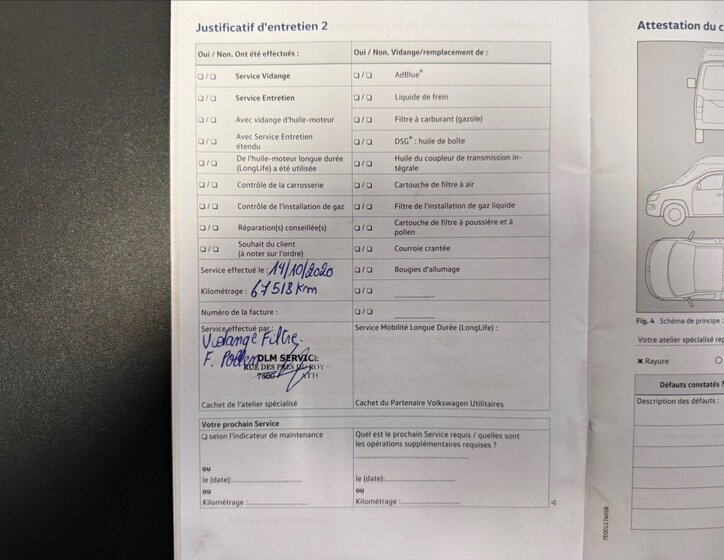 Justificatif d'entretien 2
Oui / Non. Ont été effectués :
Oui / Non. Vidange/remplacement de :
❏ / ❏ Service Vidange
❏ / ❏ AdBlue®
❏ / ❏ Service Entretien
❏ / ❏ Liquide de frein
❏ / ❏ Avec vidange d'huile-moteur
❏ / ❏ Filtre à carburant (gazole)
❏ / ❏ Avec Service Entretien
étendu
❏ / ❏ DSG® : huile de boîte
❏ / ❏ De l'huile-moteur longue durée
(LongLife) a été utilisée
❏ / ❏ Huile du coupleur de transmission in-
tégrale
❏ / ❏ Contrôle de la carrosserie
❏ / ❏ Cartouche de filtre à air
❏ / ❏ Contrôle de l'installation de gaz
❏ / ❏ Filtre de l'installation de gaz liquide
❏ / ❏ Réparation(s) conseillée(s)
❏ / ❏ Cartouche de filtre à poussière et à
pollen
❏ / ❏ Souhait du client
(à noter sur l'ordre)
❏ / ❏ Courroie crantée
Service effectué le : 14/10/2020
❏ / ❏ Bougies d'allumage
Kilométrage : 67518 km
❏ / ❏ ....................
Numéro de la facture :
❏ / ❏ ....................
Service effectué par :
Vidange Filtre.
F. Pollen
DLM SERVICE
RUE DES PRES DU ROY
7800 ATH
Cachet de l'atelier spécialisé
Service Mobilité Longue Durée (LongLife) :
Cachet du Partenaire Volkswagen Utilitaires
Votre prochain Service
❏ selon l'indicateur de maintenance
ou
le (date):..............................
ou
Kilométrage :..............................
Quel est le prochain Service requis / quelles sont
les opérations supplémentaires requises ?
..................................................
le (date):..............................
ou
Kilométrage :..............................
Attestation du c
Fig. 4 Schéma de principe :
Votre atelier spécialisé rep
✖ Rayure O
Défauts constatés
Description des défauts :
7E0012740SB